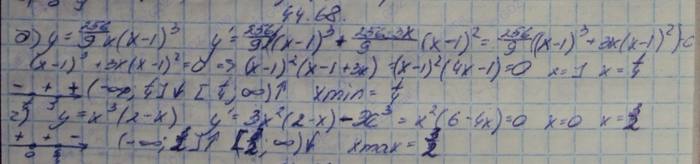 44.68.
б) y = 256/9 x(x-1)³ y' = 256/9 (x-1)³ + 256·3x/9 (x-1)² = 256/9 ((x-1)³ + 3x(x-1)²) = 0
(x-1)³ + 3x(x-1)² = 0 => (x-1)²(x-1+3x) = (x-1)²(4x-1) = 0 x = 1 x = 1/4
- + + (-∞, 1/4]↓ [1/4, ∞)↑ xmin = 1/4
г) y = x³(2-x) y' = 3x²(2-x) - x³ = x²(6-4x) = 0 x = 0 x = 3/2
+ + - (-∞; 3/2]↑ [3/2, ∞)↓ xmax = 3/2
0 3/2